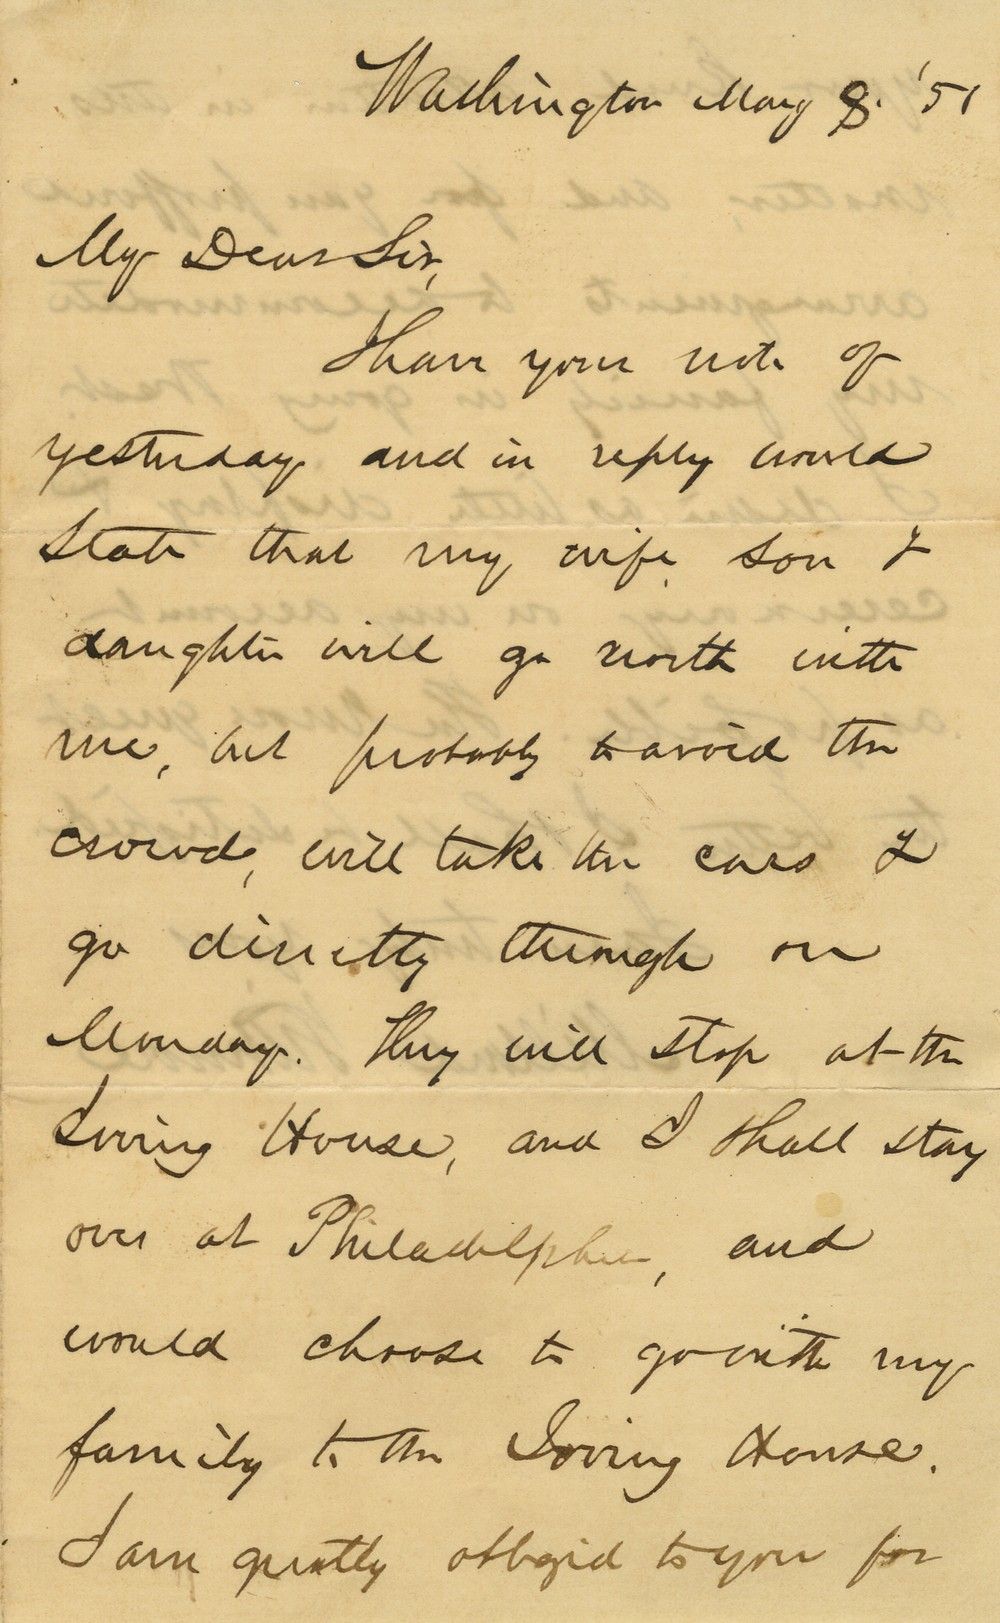 Washington May 8. '51
My Dear Sir,
I have your note of
yesterday and in reply would
state that my wife, son &
daughter will go north with
me, but probably to avoid the
crowd, will take the cars &
go directly through on
Monday. They will stop at the
Irving House, and I shall stay
over at Philadelphia, and
would choose to go with my
family to the Irving House.
I am greatly obliged to you for